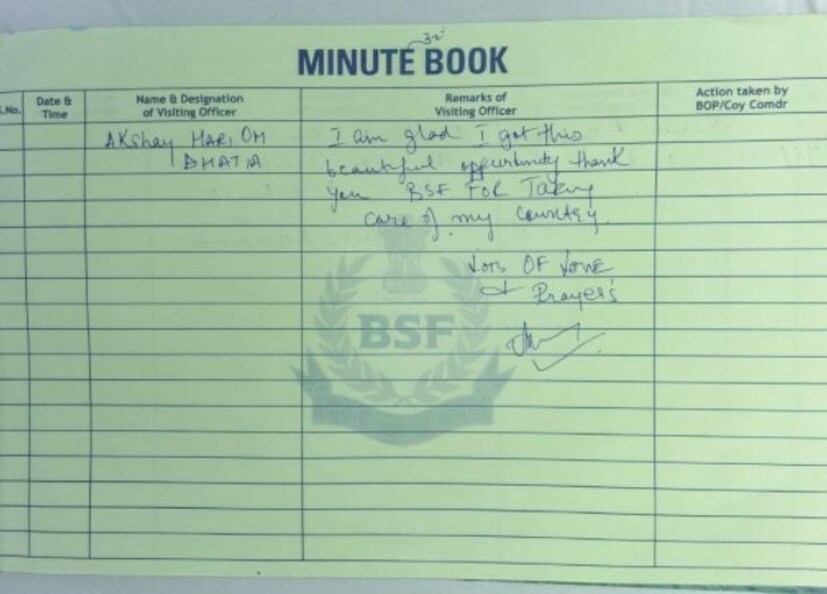 32
MINUTE BOOK
S.No.
Date &
Time
Name & Designation
of Visiting Officer
Remarks of
Visiting Officer
Action taken by
BOP/Coy Comdr
AKshay HARI OM
BHATIA
I am glad I got this
beautiful oppurtunity thank
you BSF FOR Taking
care of my Country.
Lots OF Love
& Prayer's
BSF